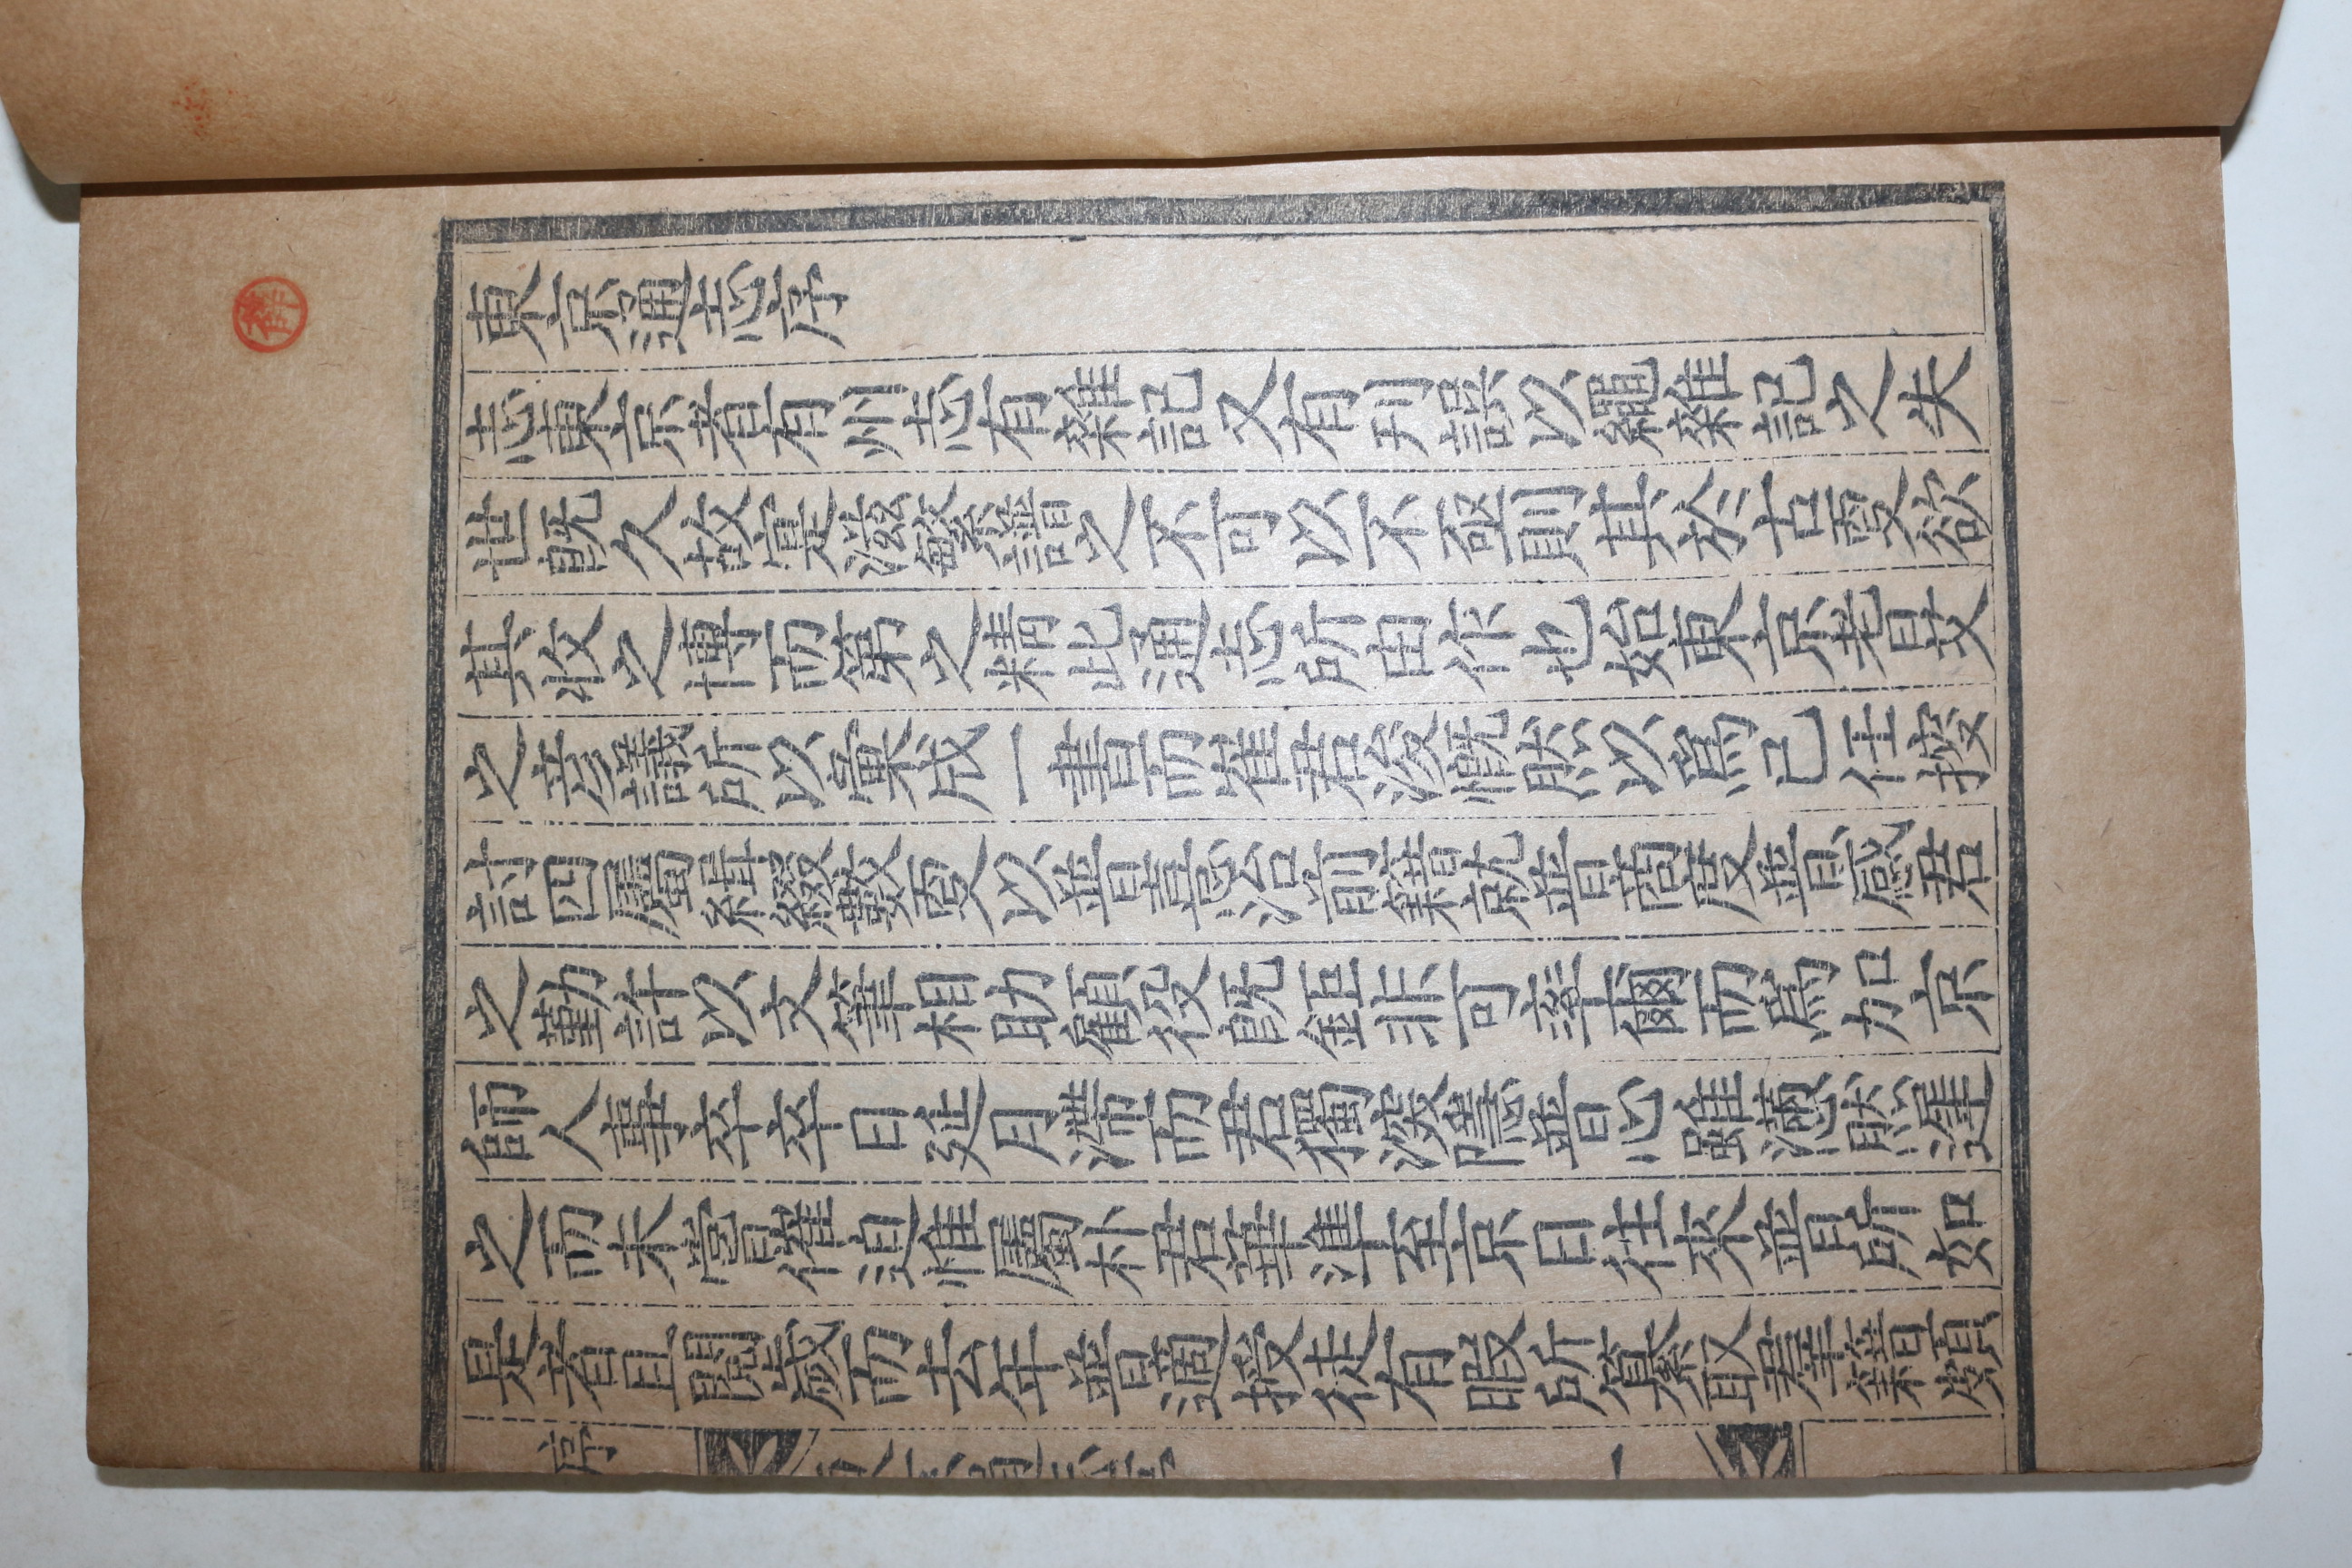 東京通志序
志東京者有州志有雜記又有刊誤以繩雜記之失
世旣久故寔滋繁譜之不可以不亟則其於古叓欲
其收之博而第之精此通志所由作也始東京耆艾
之彦議所以彙成一書而崔君浚慨然以爲己任搜
討四屬緝綴數叓以普憙治前籍就普商度普感君
之勤許以文筆相助顧役旣鉅非可率爾而爲加京
師人事卒卒日延月滯而君獨深隱普心雖懣然遲
之而未嘗催迫惟屬朴君華準至京日往來普所如
是者且閱歲而去年普適授徒有暇所纂取羣籍頗
序
一
薛